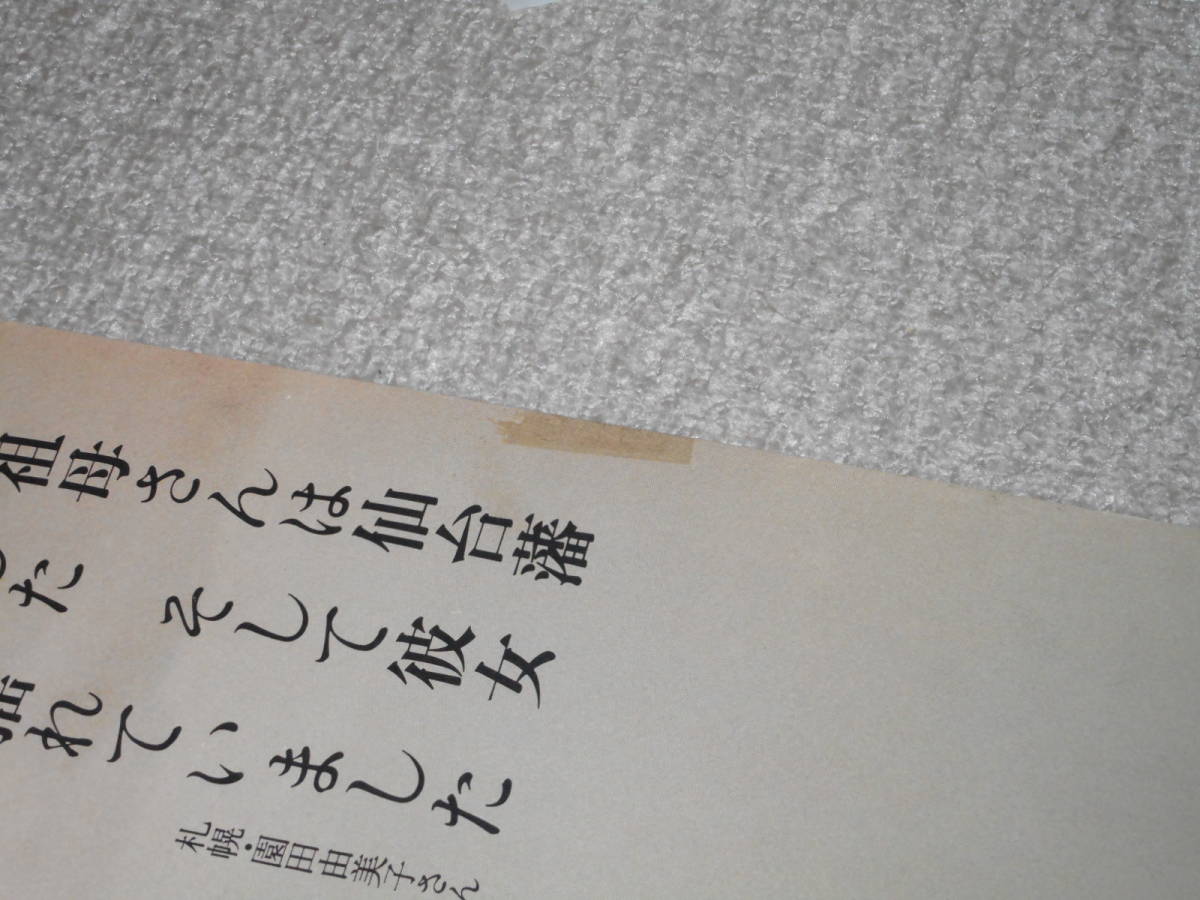 祖母さんは仙台藩
した そして彼女
揺れていました
札幌・園田由美子さん